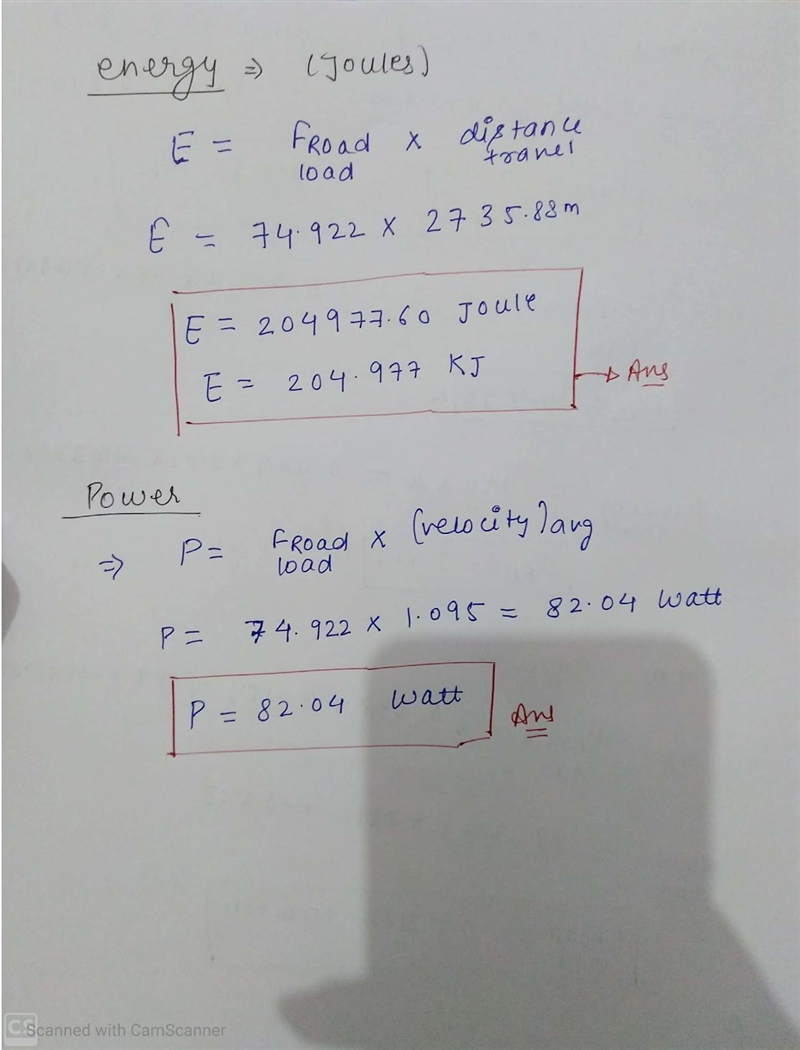 energy ⇒ (Joules)
E = FRoad load × distance travel
E = 74.922 × 2735.88m
E = 204977.60 Joule
E = 204.977 KJ
→ Ans
Power
⇒ P = FRoad load × (velocity)avg
P = 74.922 × 1.095 = 82.04 watt
P = 82.04 watt
Ans
CS Scanned with CamScanner